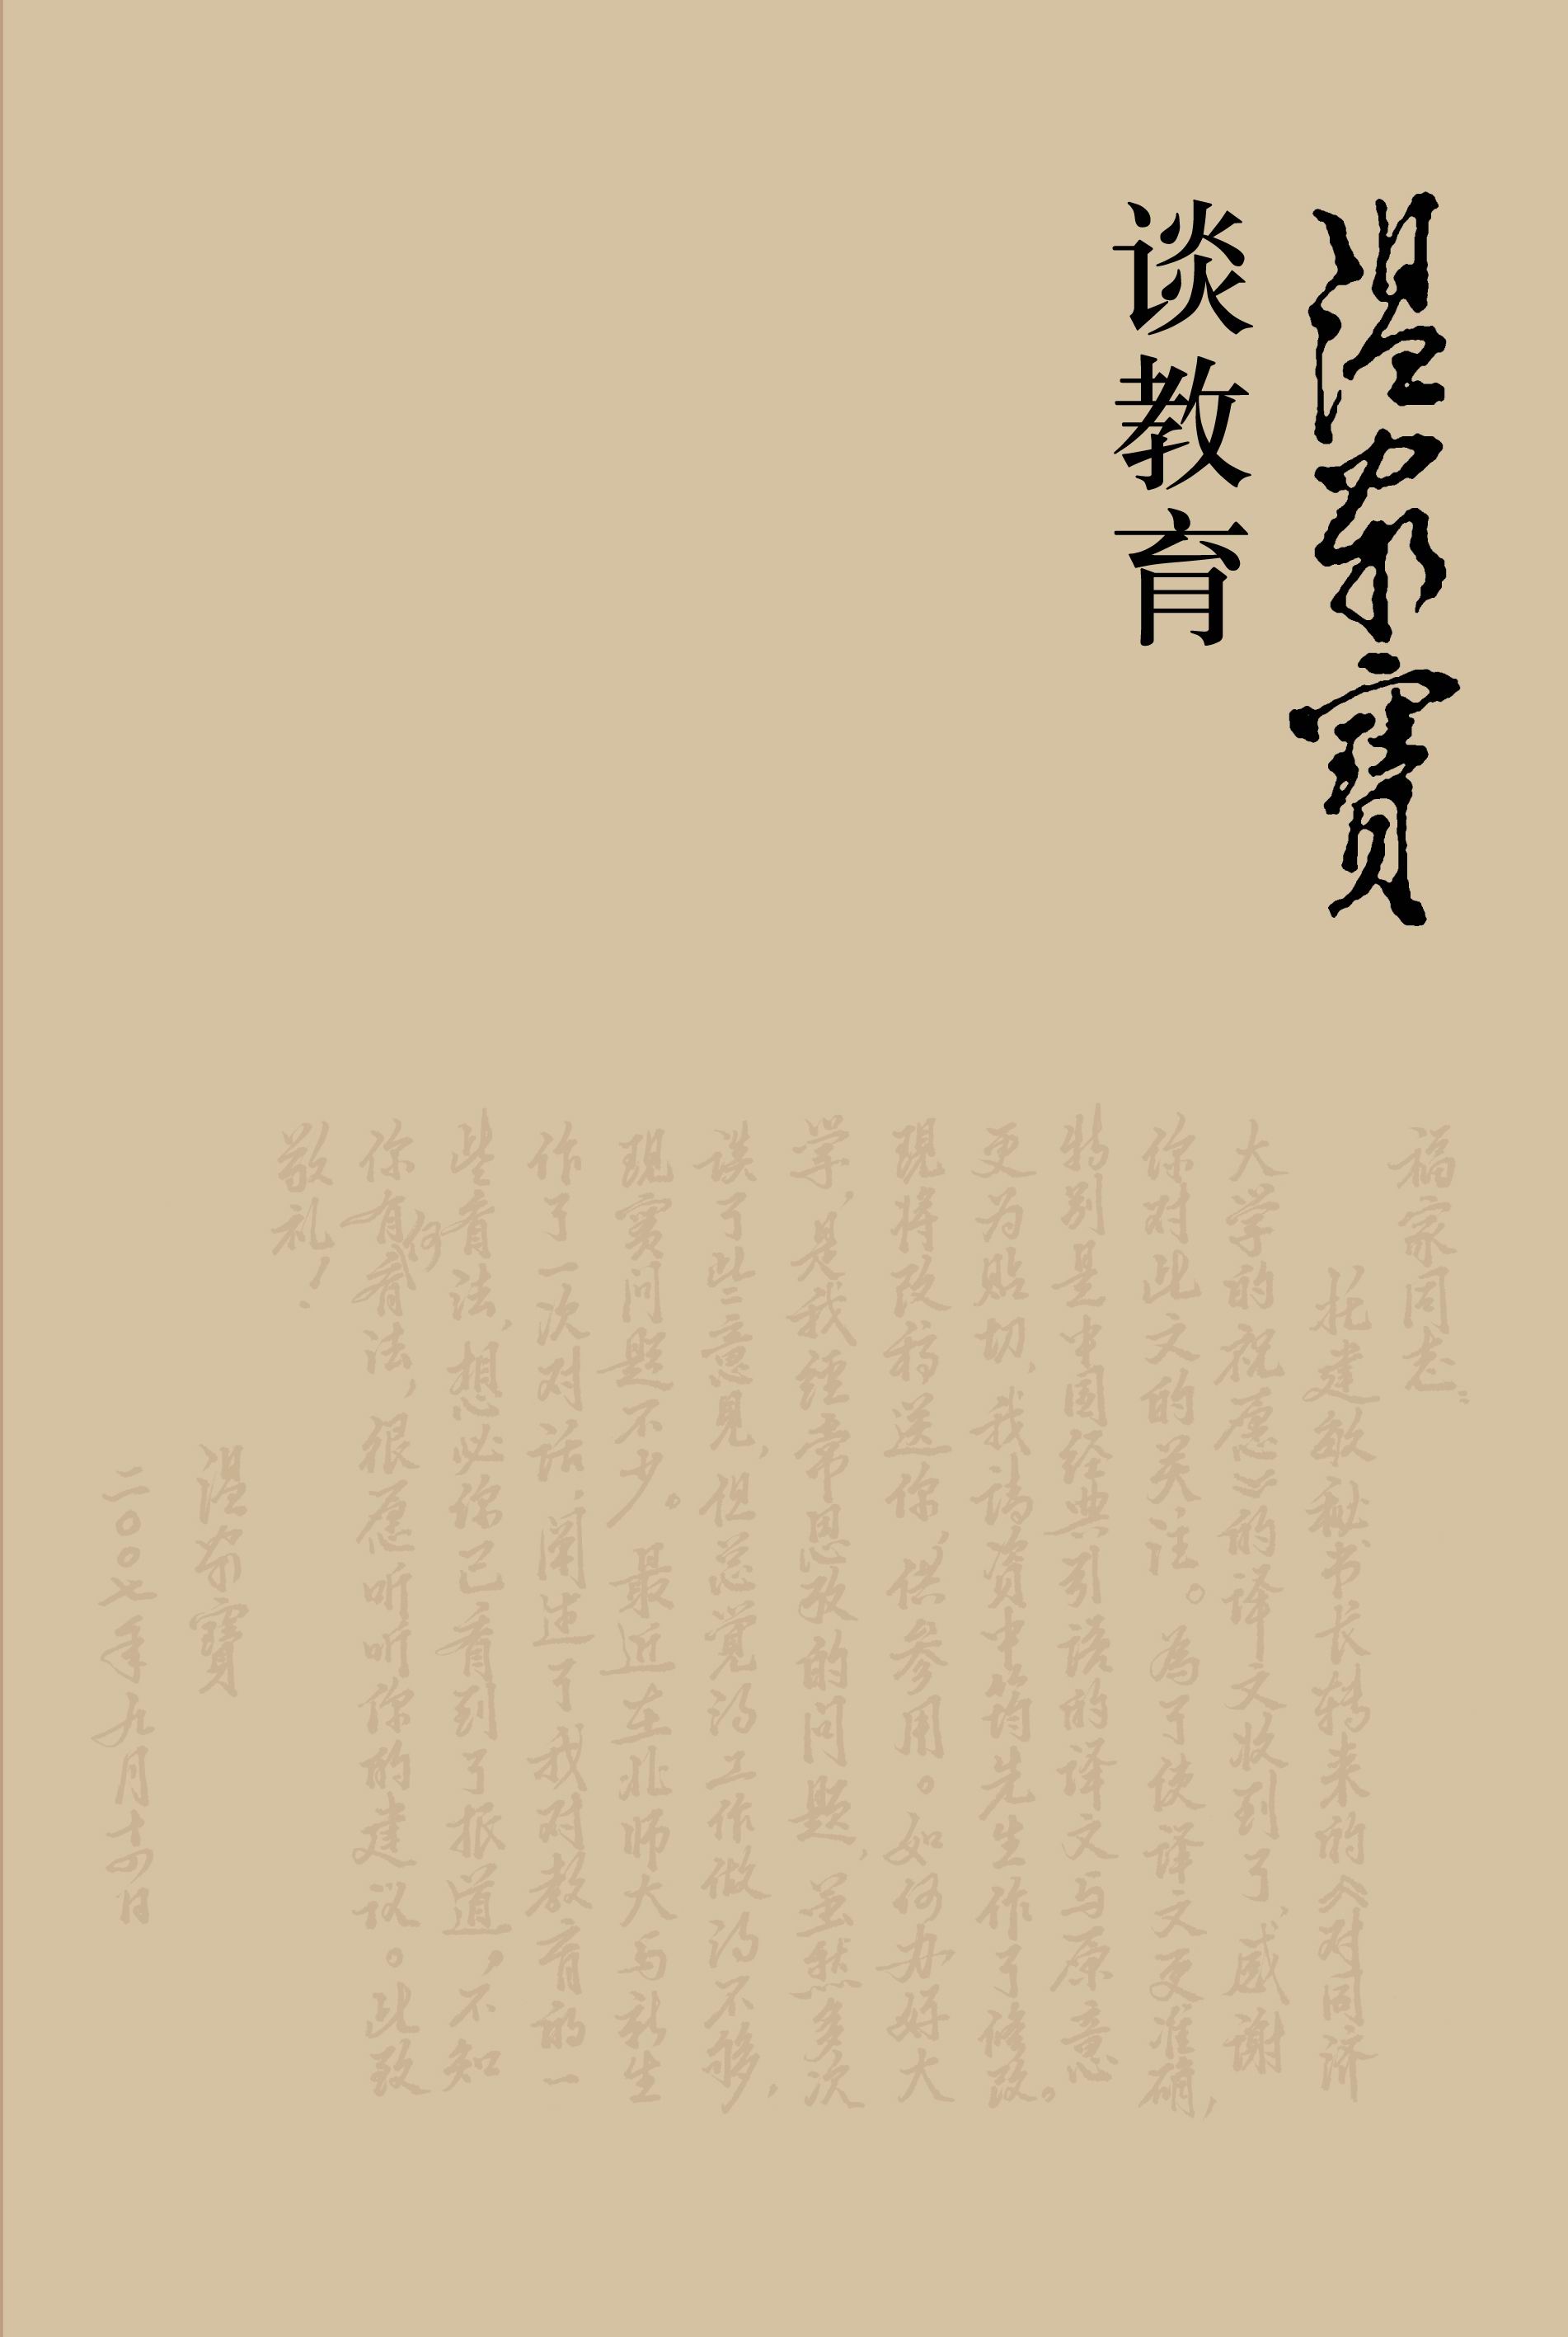 温家寶
谈教育
福家同志：
托建敏秘书长转来的《对同济
大学的祝愿》的译文收到了，感谢
你对此文的关注。为了使译文更准确，
特别是中国经典引语的译文与原意
更为贴切，我请资中筠先生作了修改。
现将改稿送你，供参用。如何办好大
学，是我经常思考的问题，虽然多次
谈了些意见，但总觉得工作做得不够，
现实问题不少。最近在北师大与新生
作了一次对话，阐述了我对教育的一
些看法，想必你已看到了报道，不知
你有何看法，很愿听听你的建议。此致
敬礼！
温家寶
二〇〇七年九月十四日